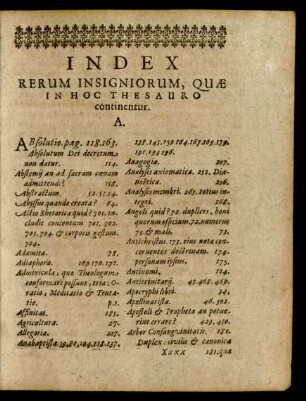 INDEX
RERUM INSIGNIORUM, QUÆ
IN HOC THESAURO
continentur.
A.
ABsolutio. pag. 118.163.
Absolutum Dei decretum
non datur. 114.
Abstemij an ad sacram cœnam
admittendi? 158.
Abstractum. 52.53.54.
Abyssus quando creata? 64.
Actio Rhetorica quid? 701. in-
cludit concentum 701. 702.
703. 704. & corporis gestum.
704.
Adamitæ. 78.
Adiaphora. 169.170.171.
Adminicula, quæ Theologum
conformare possunt, tria: O-
ratio, Meditatio & Tenta-
tio. p.1.
Affinitas. 185.
Agricultura. 27.
Allegoria. 207.
Anabaptistæ 79.80.104.128.137.
138.145.150.164.167.169.179.
191.193.196.
Anagogia. 207.
Analysis axiomatica. 252. Dia-
noëtica. 296.
Analysis membri. 265. totius in-
tegri. 268.
Angeli quid? 72. duplices, boni
quorum officium. 72. numerem
75. & mali. 73.
Antichristus. 173. ejus nota con-
cernentes doctrinam. 174.
personam ipsius. 175.
Antinomi. 124.
Antitrinitarij. 47.468.469.
Apocryphi libri. 34.
Apollinaristæ. 46.302.
Apostoli & Prophetæ an potue-
rint errare? 429.430.
Arbor Consanguinitatis. 181.
Duplex: civilis & canonica
Xxxx 181. quæ